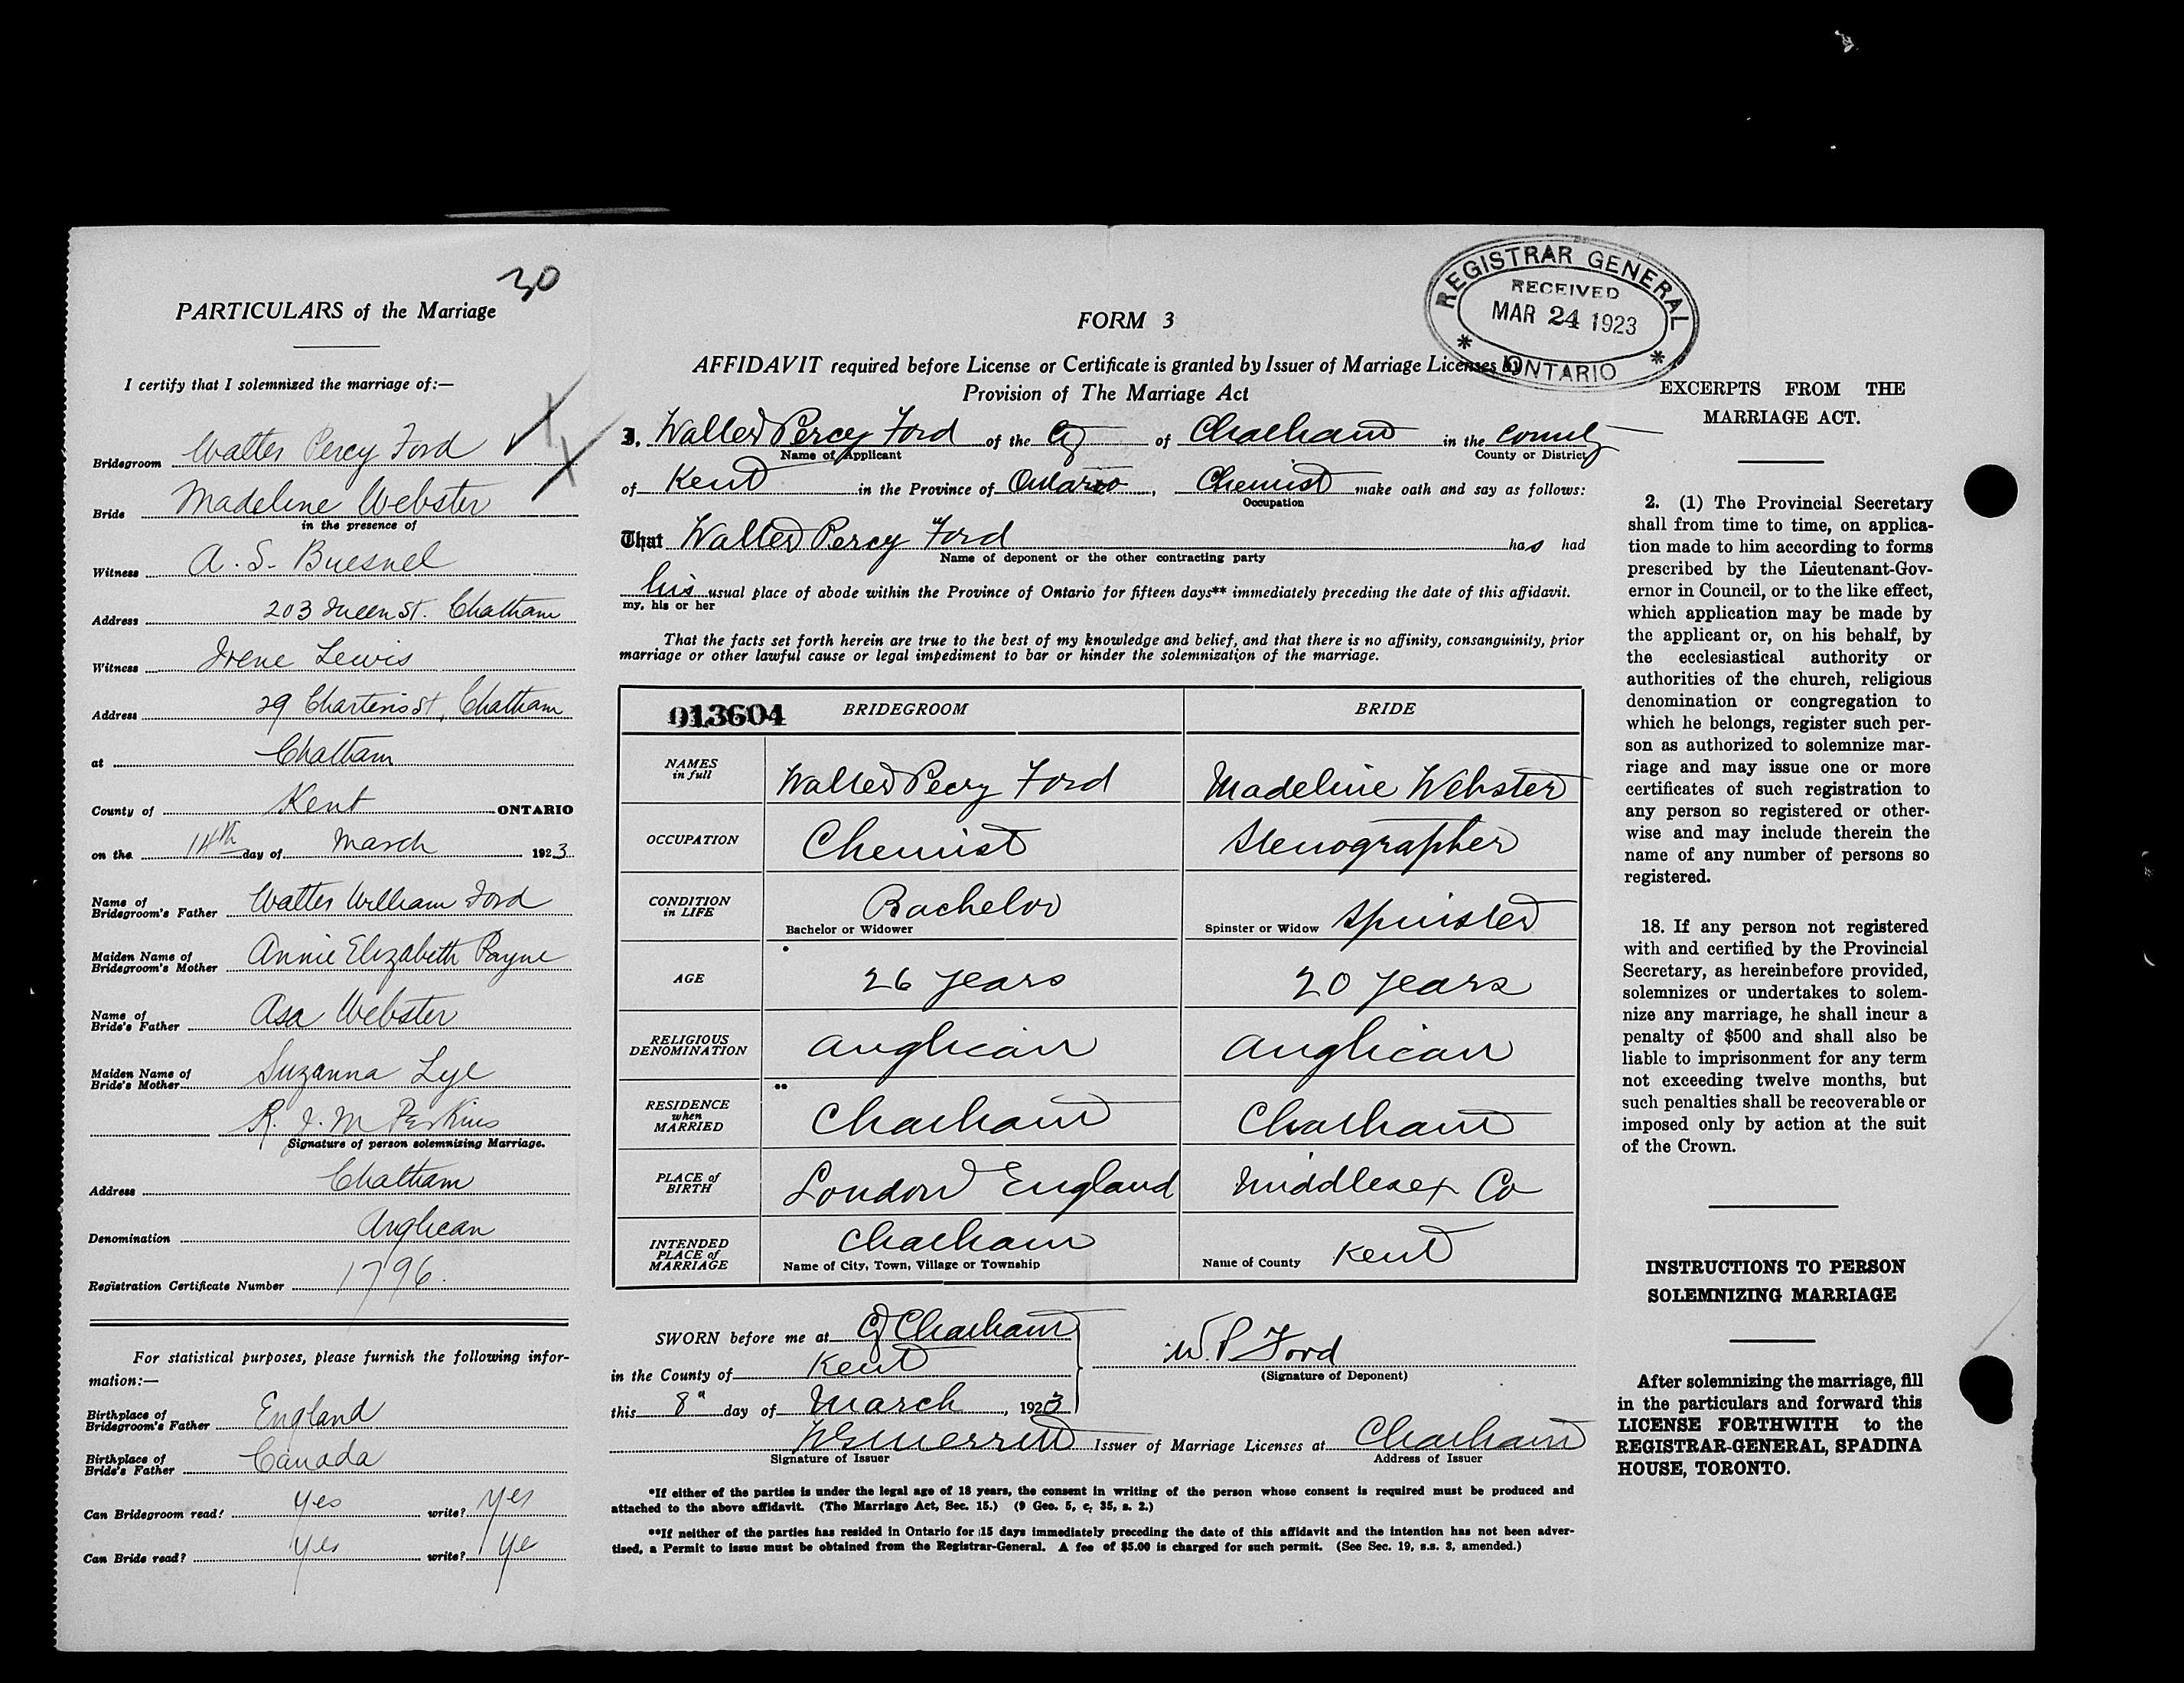 30
PARTICULARS of the Marriage
I certify that I solemnized the marriage of:—
Bridegroom Walter Percy Ford
Bride Madeline Webster
in the presence of
Witness A. S. Buesnel
Address 203 Queen St. Chatham
Witness Irene Lewis
Address 29 Charteris St, Chatham
at Chatham
County of Kent ONTARIO
on the 14th day of March 1923
Name of Bridegroom's Father Walter William Ford
Maiden Name of Bridegroom's Mother Annie Elizabeth Payne
Name of Bride's Father Asa Webster
Maiden Name of Bride's Mother Suzanna Lye
R. J. M Perkins
Signature of person solemnizing Marriage.
Address Chatham
Denomination Anglican
Registration Certificate Number 1796.
For statistical purposes, please furnish the following infor-
mation:—
Birthplace of Bridegroom's Father England
Birthplace of Bride's Father Canada
Can Bridegroom read? yes write? yes
Can Bride read? yes write? ye
REGISTRAR GENERAL
RECEIVED
MAR 24 1923
* ONTARIO *
FORM 3
AFFIDAVIT required before License or Certificate is granted by Issuer of Marriage Licenses by
Provision of The Marriage Act
I, Walter Percy Ford of the Cy of Chatham in the County
Name of Applicant County or District
of Kent in the Province of Ontario, Chemist make oath and say as follows:
Occupation
That Walter Percy Ford has had
Name of deponent or the other contracting party
his usual place of abode within the Province of Ontario for fifteen days** immediately preceding the date of this affidavit.
my, his or her
That the facts set forth herein are true to the best of my knowledge and belief, and that there is no affinity, consanguinity, prior
marriage or other lawful cause or legal impediment to bar or hinder the solemnization of the marriage.
013604 BRIDEGROOM BRIDE
NAMES in full Walter Percy Ford Madeline Webster
OCCUPATION Chemist Stenographer
CONDITION in LIFE Bachelor Spinster or Widow Spinster
Bachelor or Widower
* AGE 26 years 20 years
RELIGIOUS DENOMINATION Anglican Anglican
** RESIDENCE when MARRIED Chatham Chatham
PLACE of BIRTH London England Middlesex Co
INTENDED PLACE of MARRIAGE Chatham Name of County Kent
Name of City, Town, Village or Township
SWORN before me at Cy Chatham
in the County of Kent W. P Ford
(Signature of Deponent)
this 8" day of March, 1923
Merritt Issuer of Marriage Licenses at Chatham
Signature of Issuer Address of Issuer
*If either of the parties is under the legal age of 18 years, the consent in writing of the person whose consent is required must be produced and
attached to the above affidavit. (The Marriage Act, Sec. 15.) (9 Geo. 5, c. 35, s. 2.)
**If neither of the parties has resided in Ontario for 15 days immediately preceding the date of this affidavit and the intention has not been adver-
tised, a Permit to issue must be obtained from the Registrar-General. A fee of $5.00 is charged for such permit. (See Sec. 19, s.s. 3, amended.)
EXCERPTS FROM THE
MARRIAGE ACT.
2. (1) The Provincial Secretary
shall from time to time, on applica-
tion made to him according to forms
prescribed by the Lieutenant-Gov-
ernor in Council, or to the like effect,
which application may be made by
the applicant or, on his behalf, by
the ecclesiastical authority or
authorities of the church, religious
denomination or congregation to
which he belongs, register such per-
son as authorized to solemnize mar-
riage and may issue one or more
certificates of such registration to
any person so registered or other-
wise and may include therein the
name of any number of persons so
registered.
18. If any person not registered
with and certified by the Provincial
Secretary, as hereinbefore provided,
solemnizes or undertakes to solem-
nize any marriage, he shall incur a
penalty of $500 and shall also be
liable to imprisonment for any term
not exceeding twelve months, but
such penalties shall be recoverable or
imposed only by action at the suit
of the Crown.
INSTRUCTIONS TO PERSON
SOLEMNIZING MARRIAGE
After solemnizing the marriage, fill
in the particulars and forward this
LICENSE FORTHWITH to the
REGISTRAR-GENERAL, SPADINA
HOUSE, TORONTO.